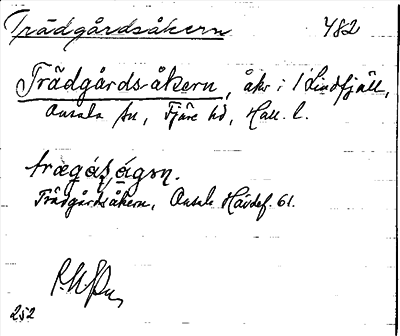 Trädgårdsåkern 482
Trädgårds-åkern, åker i 1 Lindfjäll,
Onsala sn, Fjäre hd, Hall. l.
Trädgårdsåkern, Onsala Hävdef. 61.
252